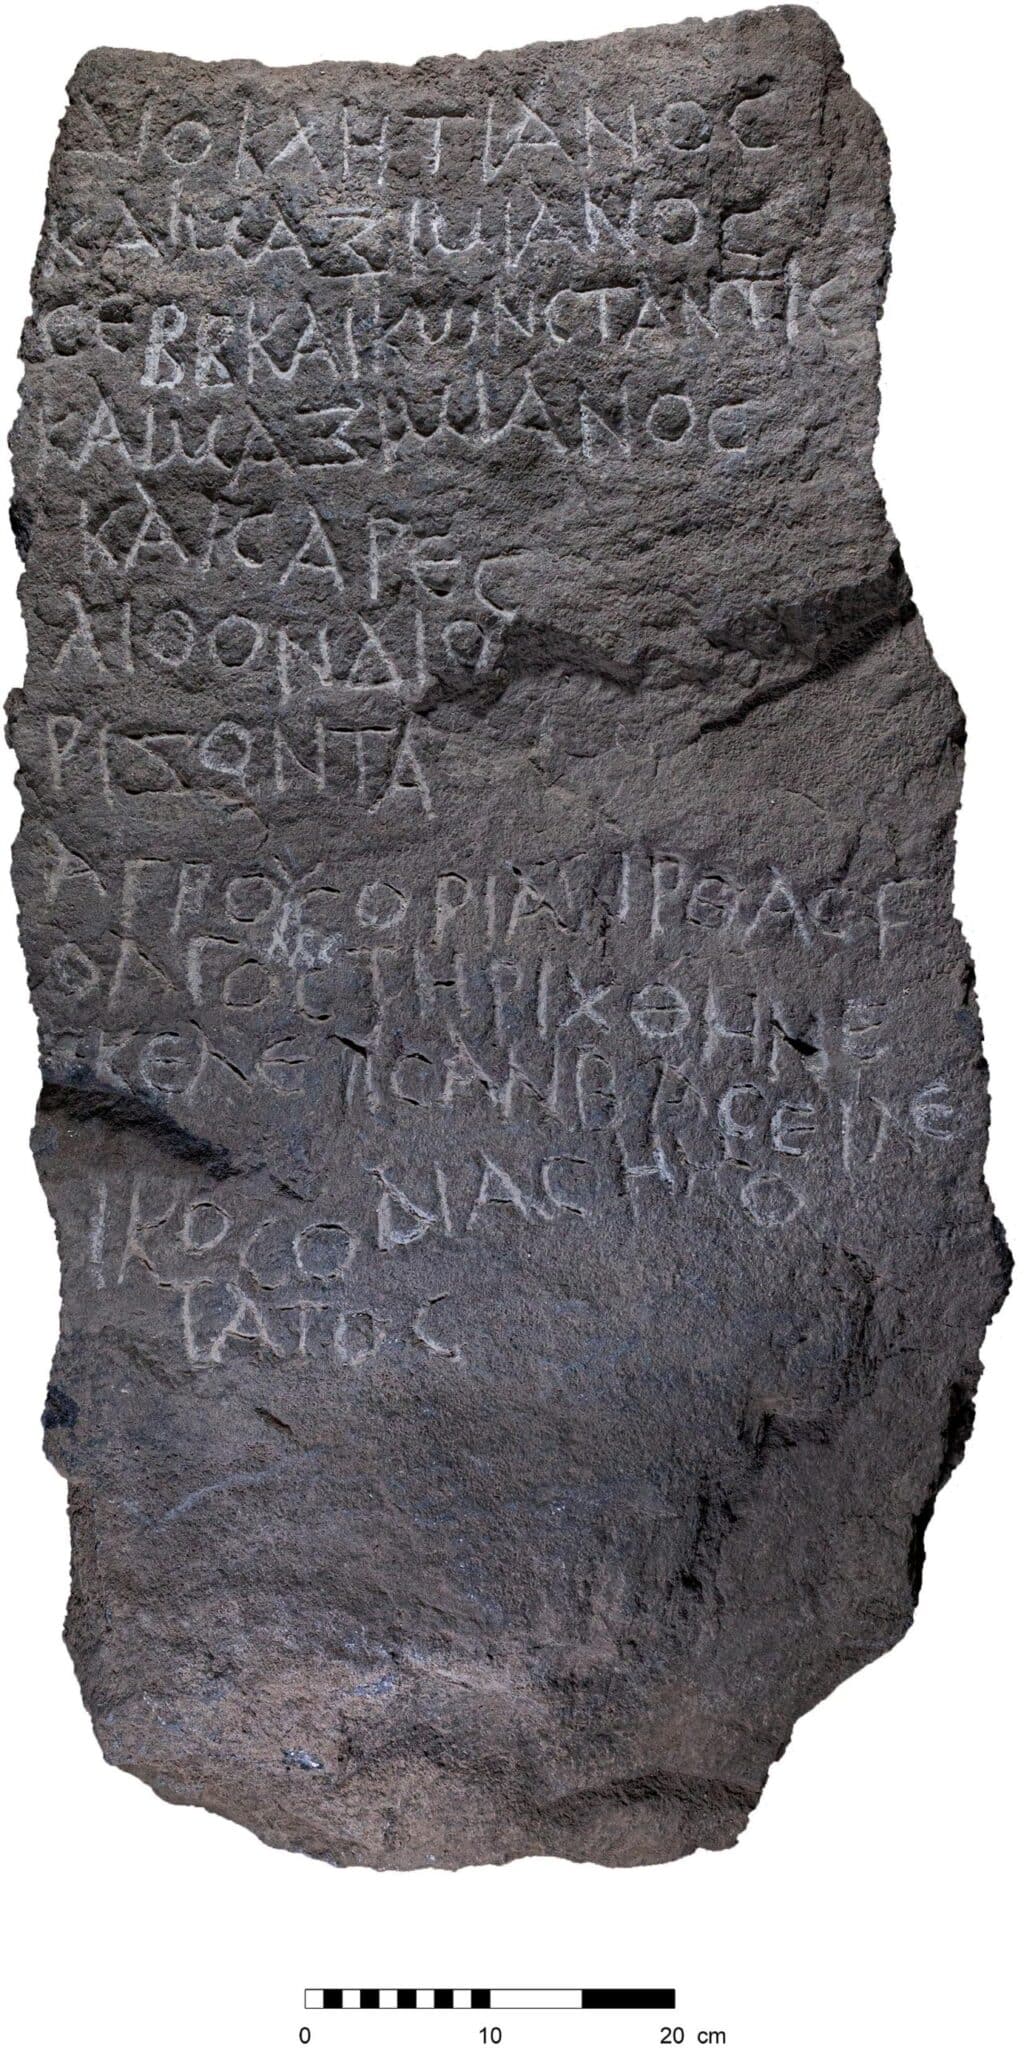 ΔΙΟΚΛΗΤΙΑΝΟϹ
ΚΑΙΜΑΞΙΜΙΑΝΟϹ
ϹΕΒΒΚΑΙΚΩΝϹΤΑΝΤΙϹ
ΚΑΙΜΑΞΙΜΙΑΝΟϹ
ΚΑΙϹΑΡΕϹ
ΛΙΘΟΝΔΙΟ
ΡΙΖΟΝΤΑ
ΑΓΡΟΥϹΟΡΙΑΤΙΡΘΑϹ
ϹΤΗΡΙΧΘΗΝΕ
ΕΚΕΛΕΥϹΑΝΒΑϹΕΙΛΕ
ΙΚΟϹΟΔΙΑϹΗΜΟ
ΤΑΤΟϹ
0 10 20 cm